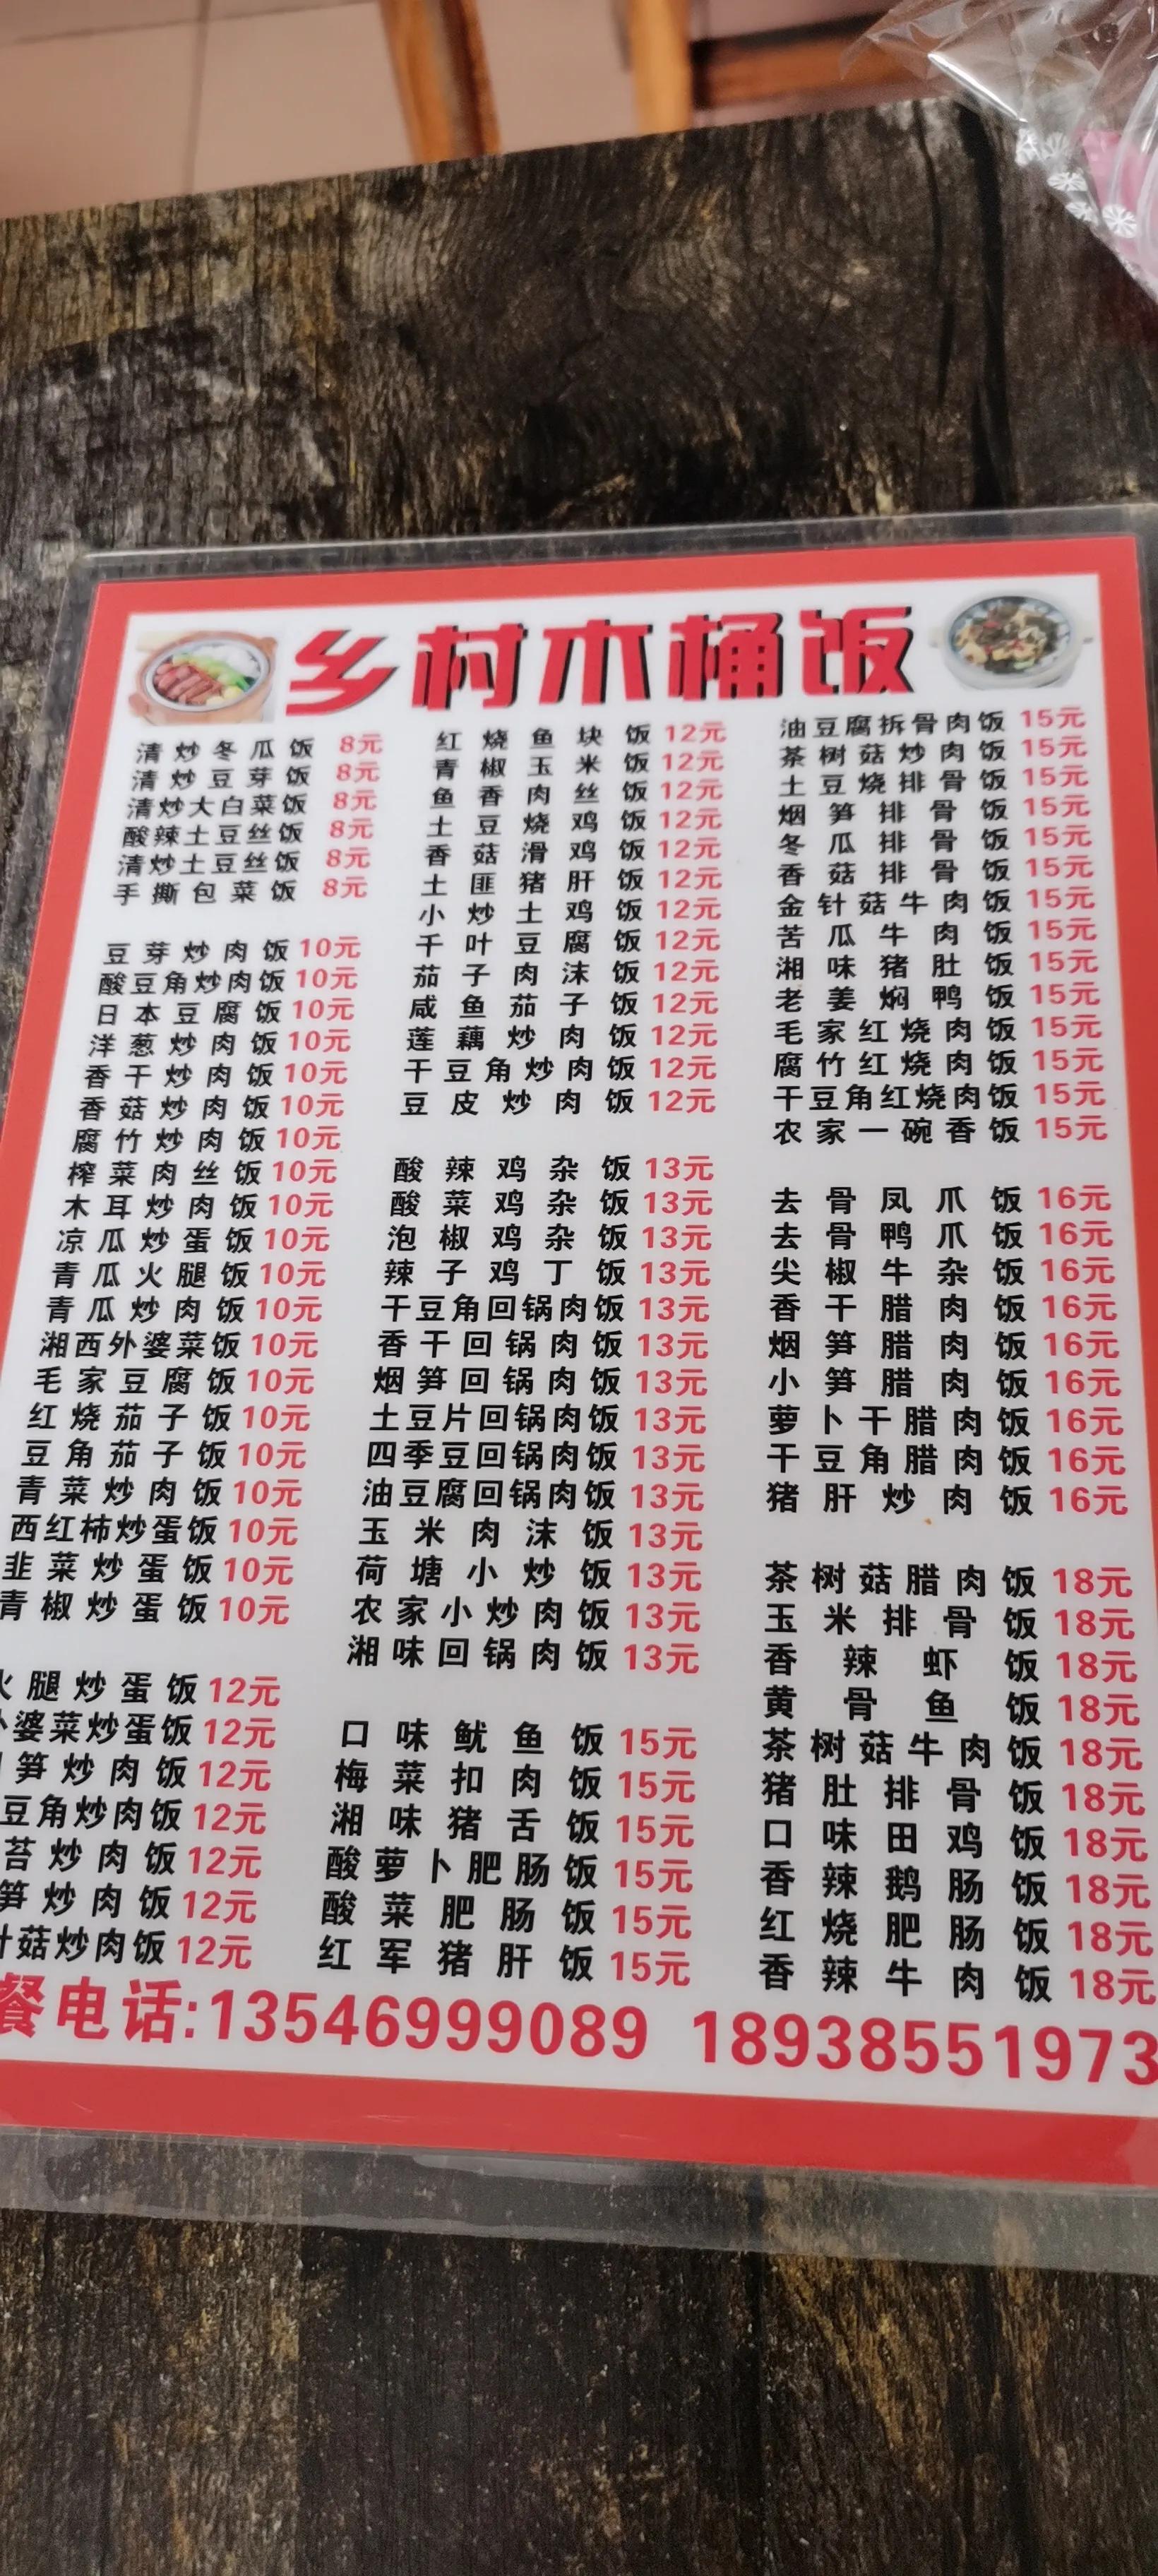 乡村木桶饭
清炒冬瓜饭 8元
清炒豆芽饭 8元
清炒大白菜饭 8元
酸辣土豆丝饭 8元
清炒土豆丝饭 8元
手撕包菜饭 8元
豆芽炒肉饭 10元
酸豆角炒肉饭 10元
日本豆腐饭 10元
洋葱炒肉饭 10元
香干炒肉饭 10元
香菇炒肉饭 10元
腐竹炒肉饭 10元
榨菜肉丝饭 10元
木耳炒肉饭 10元
凉瓜炒蛋饭 10元
青瓜火腿饭 10元
青瓜炒肉饭 10元
湘西外婆菜饭 10元
毛家豆腐饭 10元
红烧茄子饭 10元
豆角茄子饭 10元
青菜炒肉饭 10元
西红柿炒蛋饭 10元
韭菜炒蛋饭 10元
青椒炒蛋饭 10元
火腿炒蛋饭 12元
婆菜炒蛋饭 12元
笋炒肉饭 12元
豆角炒肉饭 12元
苔炒肉饭 12元
笋炒肉饭 12元
菇炒肉饭 12元
红烧鱼块饭 12元
青椒玉米饭 12元
鱼香肉丝饭 12元
土豆烧鸡饭 12元
香菇滑鸡饭 12元
土匪猪肝饭 12元
小炒土鸡饭 12元
千叶豆腐饭 12元
茄子肉沫饭 12元
咸鱼茄子饭 12元
莲藕炒肉饭 12元
干豆角炒肉饭 12元
豆皮炒肉饭 12元
酸辣鸡杂饭 13元
酸菜鸡杂饭 13元
泡椒鸡杂饭 13元
辣子鸡丁饭 13元
干豆角回锅肉饭 13元
香干回锅肉饭 13元
烟笋回锅肉饭 13元
土豆片回锅肉饭 13元
四季豆回锅肉饭 13元
油豆腐回锅肉饭 13元
玉米肉沫饭 13元
荷塘小炒饭 13元
农家小炒肉饭 13元
湘味回锅肉饭 13元
口味鱿鱼饭 15元
梅菜扣肉饭 15元
湘味猪舌饭 15元
酸萝卜肥肠饭 15元
酸菜肥肠饭 15元
红军猪肝饭 15元
油豆腐拆骨肉饭 15元
茶树菇炒肉饭 15元
土豆烧排骨饭 15元
烟笋排骨饭 15元
冬瓜排骨饭 15元
香菇排骨饭 15元
金针菇牛肉饭 15元
苦瓜牛肉饭 15元
湘味猪肚饭 15元
老姜焖鸭饭 15元
毛家红烧肉饭 15元
腐竹红烧肉饭 15元
干豆角红烧肉饭 15元
农家一碗香饭 15元
去骨凤爪饭 16元
去骨鸭爪饭 16元
尖椒牛杂饭 16元
香干腊肉饭 16元
烟笋腊肉饭 16元
小笋腊肉饭 16元
萝卜干腊肉饭 16元
干豆角腊肉饭 16元
猪肝炒肉饭 16元
茶树菇腊肉饭 18元
玉米排骨饭 18元
香辣虾饭 18元
黄骨鱼饭 18元
茶树菇牛肉饭 18元
猪肚排骨饭 18元
口味田鸡饭 18元
香辣鹅肠饭 18元
红烧肥肠饭 18元
香辣牛肉饭 18元
餐电话:13546999089 18938551973